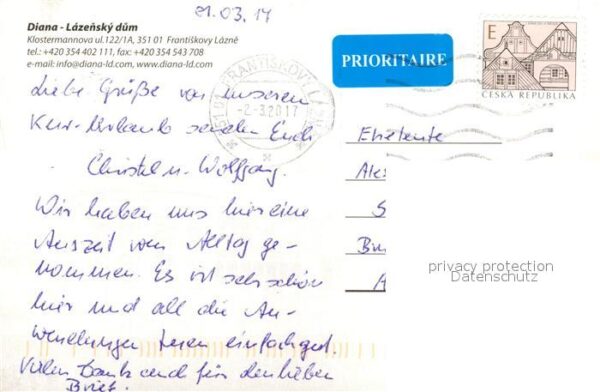 21.03.17
Diana - Lázeňský dům
Klostermannova ul.122/1A, 351 01 Františkovy Lázně
tel.: +420 354 402 111, fax: +420 354 543 708
e-mail: info@diana-ld.com, www.diana-ld.com
PRIORITAIRE
E
ČESKÁ REPUBLIKA
351 01 FRANTIŠKOVY LÁZNĚ
-2.-3.2017
Liebe Grüße von unserem
Kur-Urlaub senden Euch
Christel u. Wolfgang.
Wir haben uns hier eine
Auszeit vom Alltag ge-
nommen. Es ist sehr schön
hier und all die An-
wendungen tuen einfach gut.
Vielen Dank und für den lieben
Brief.
Eheleute
Ales
S
B
A
privacy protection
Datenschutz